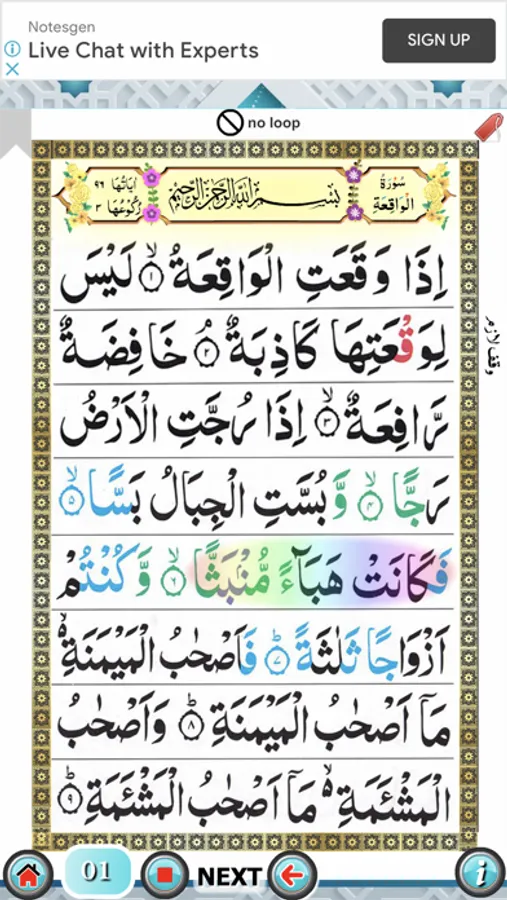 Notesgen
Live Chat with Experts
SIGN UP
no loop
سُوْرَةُ الْوَاقِعَةِ
بِسْمِ اللّٰهِ الرَّحْمٰنِ الرَّحِيْمِ
اٰيَاتُهَا ٩٦
رُكُوْعُهَا ٣
اِذَا وَقَعَتِ الْوَاقِعَةُ ۙ‏﴿۱﴾ لَيْسَ
لِوَقْعَتِهَا كَاذِبَةٌ ۘ‏﴿۲﴾ خَافِضَةٌ
وقف لازم
رَّافِعَةٌ ۙ‏﴿۳﴾ اِذَا رُجَّتِ الْاَرْضُ
رَجًّا ۙ‏﴿۴﴾ وَّ بُسَّتِ الْجِبَالُ بَسًّا ۙ‏﴿۵﴾
فَكَانَتْ هَبَآءً مُّنْۢبَثًّا ۙ‏﴿۶﴾ وَّ كُنْتُمْ
اَزْوَاجًا ثَلٰثَةً ؕ‏﴿۷﴾ فَاَصْحٰبُ الْمَيْمَنَةِ ۙ
مَاۤ اَصْحٰبُ الْمَيْمَنَةِ ؕ‏﴿۸﴾ وَاَصْحٰبُ
الْمَشْئَمَةِ ۙ مَاۤ اَصْحٰبُ الْمَشْئَمَةِ ؕ‏﴿۹﴾
01 NEXT i